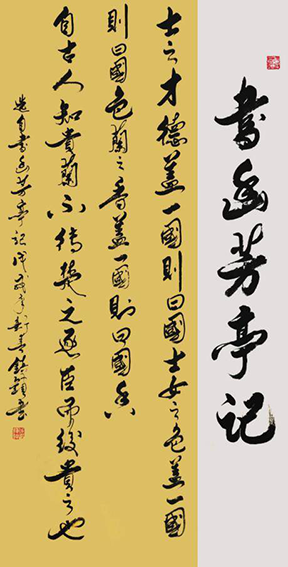 書幽芳亭记
士之才德蓋一國則曰國士女之色蓋一國
則曰國色蘭之香蓋一國則曰國香
自古人知貴蘭不待楚之逐臣而後貴之也
選自書幽芳亭记戊戌年新春書